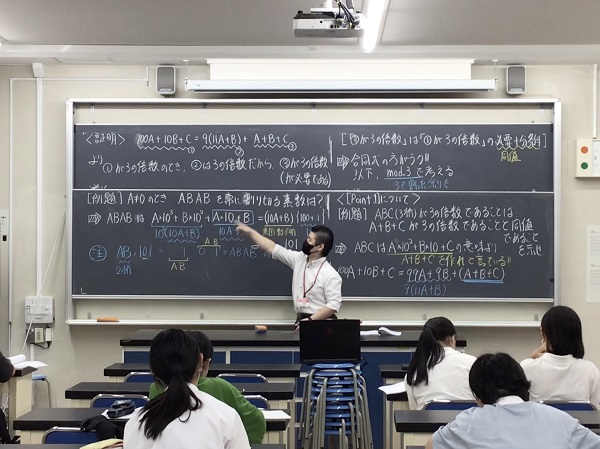 <証明> 100A+10B+C = 9(11A+B) + A+B+C
より ①が3の倍数のとき, ②は3の倍数だから, ③が3の倍数
(が必要である)
[③が3の倍数」は「①が3の倍数」の必要十分条件]
同値
⇨ 合同式の方がラク!!
以下, mod.3 で考える
[例題] A≠0のとき ABAB を常に割り切る素数は?
⇨ ABABは A×10³+B×10²+A×10+B = (10A+B)(100+1)
注 AB 101
<Point1について>
[例題] ABC(3桁)が3の倍数であることは
A+B+Cが3の倍数であることと同値
であること
を示せ
⇨ ABCは A×10²+B×10+Cの意味より
A+B+Cを作れと言っている!!
100A+10B+C = 99A+9B+(A+B+C)
9(11A+B)